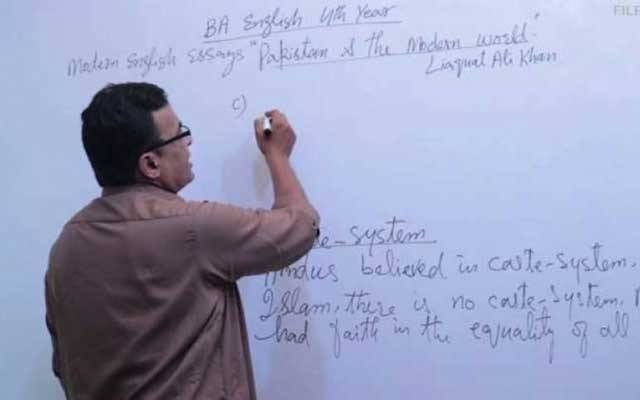 FILE
BA English 4th Year
Modern English Essays "Pakistan & The Modern World."
Liaquat Ali Khan
c)
-System
Hindus believed in caste-System.
Islam, there is no caste-System.
had faith in the equality of all